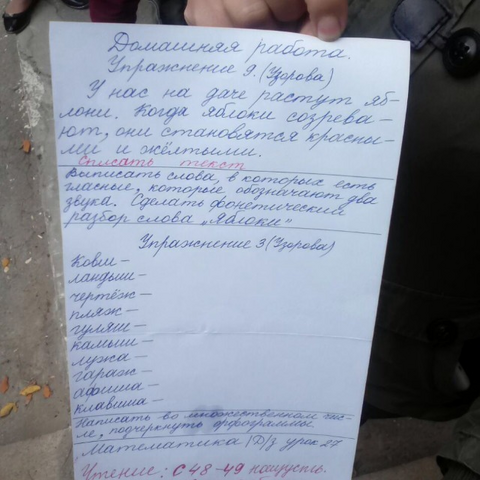 Домашняя работа.
Упражнение 9. (Узорова)
У нас на даче растут яб-
лони. Когда яблоки созрева-
ют, они становятся красны-
ми и жёлтыми.
Списать текст
Выписать слова, в которых есть
гласные, которые обозначают два
звука. Сделать фонетический
разбор слова „Яблоки"
Упражнение 3 (Узорова)
Ковш —
ландыш —
чертёж —
пляж —
гуляш —
камыш —
лужа —
гараж —
афиша —
клавиша —
Написать во множественном чис-
ле, подчеркнуть орфограммы.
Математика (Д)з урок 27
Чтение: С 48-49 наизусть.